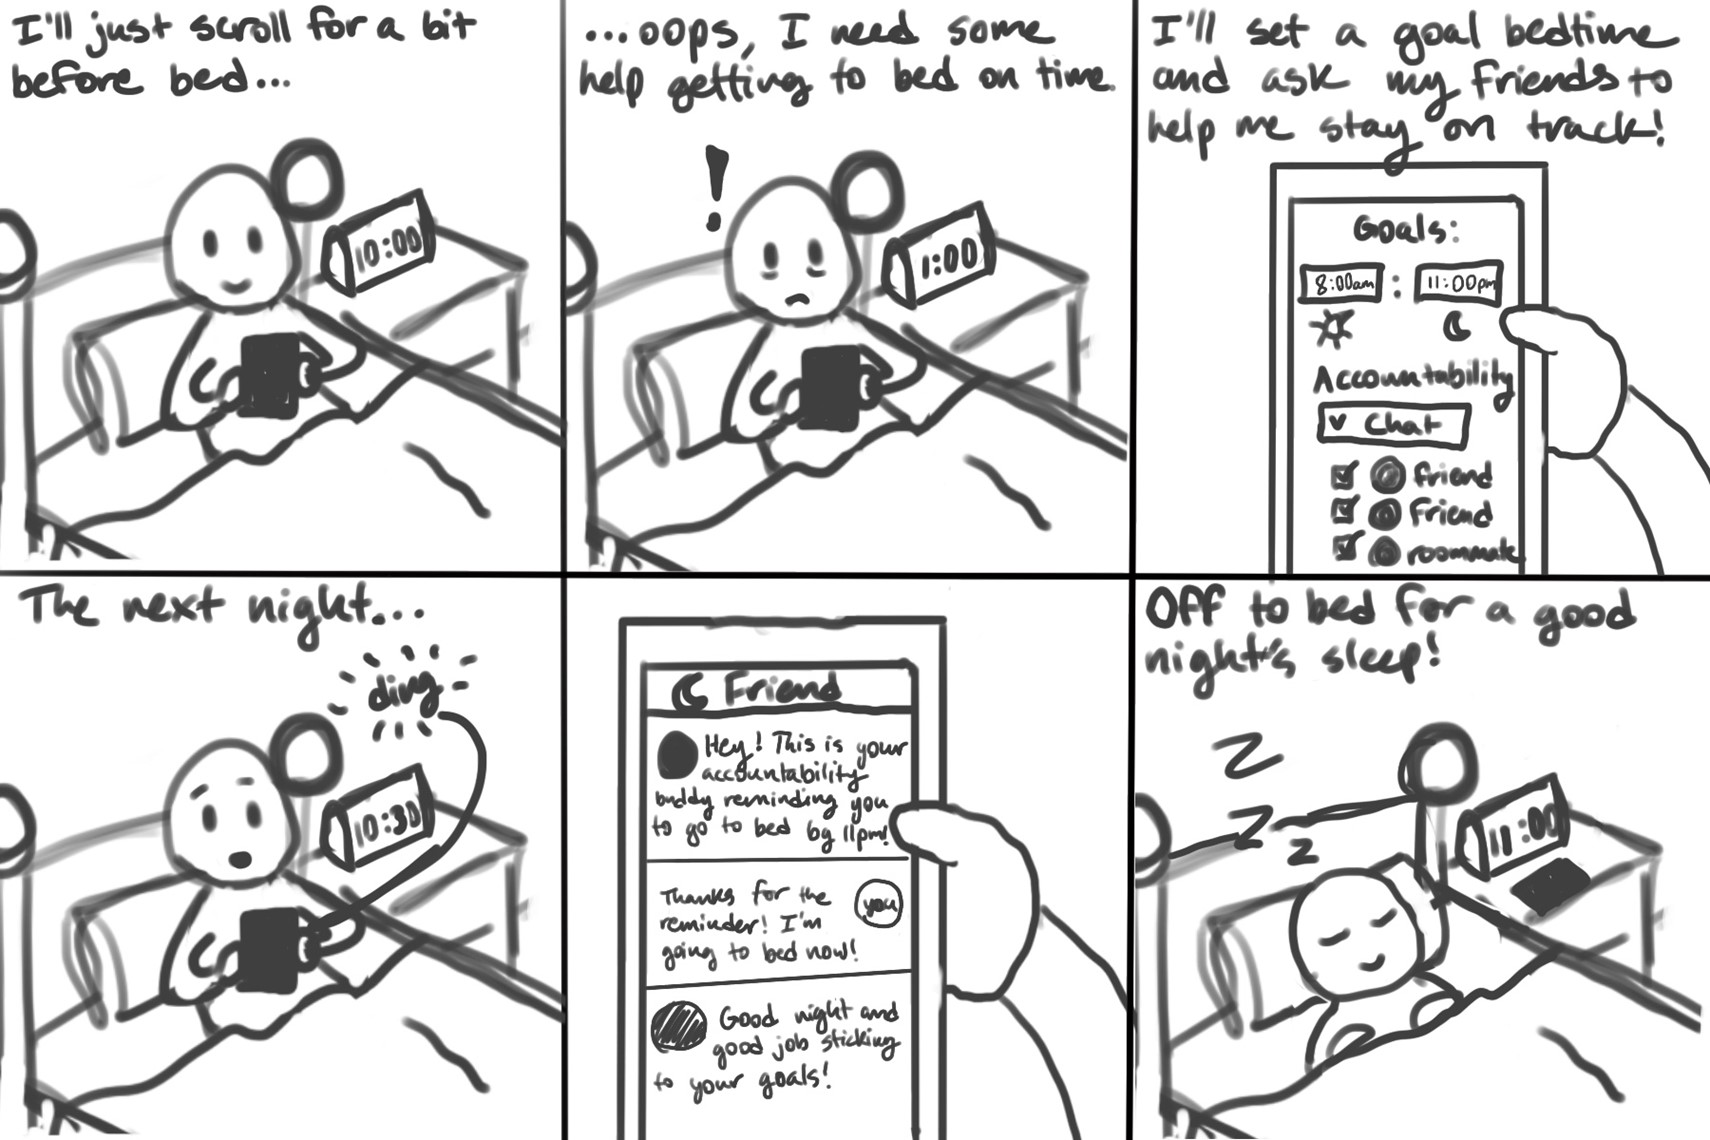 I'll just scroll for a bit
before bed...
10:00
...oops, I need some
help getting to bed on time.
!
1:00
I'll set a goal bedtime
and ask my friends to
help me stay on track!
Goals:
8:00am : 11:00pm
Accountability
Chat
friend
friend
roommate
The next night...
ding
10:30
Friend
Hey! This is your
accountability
buddy reminding you
to go to bed by 11pm!
Thanks for the
reminder! I'm
going to bed now!
you
Good night and
good job sticking
to your goals!
Off to bed for a good
night's sleep!
Z
Z
z
11:00